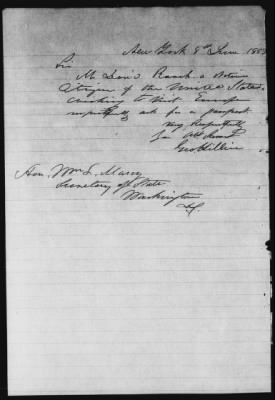 New York 8th June 1853
Sir
Mr Louis Rauch a Native
Citizen of the United States
wishing to visit Europe
respectfully ask for a passport
Very Respectfully
Yr Obt Servt
Hon. Wm L. Marcy
Secretary of State
Washington